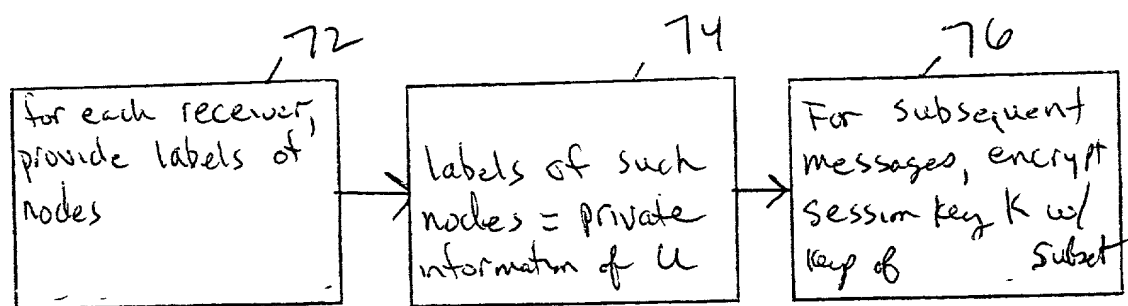 72
74
76
for each receiver,
provide labels of
nodes
labels of such
nodes = private
information of u
For subsequent
messages, encrypt
session key K w/
key of subset